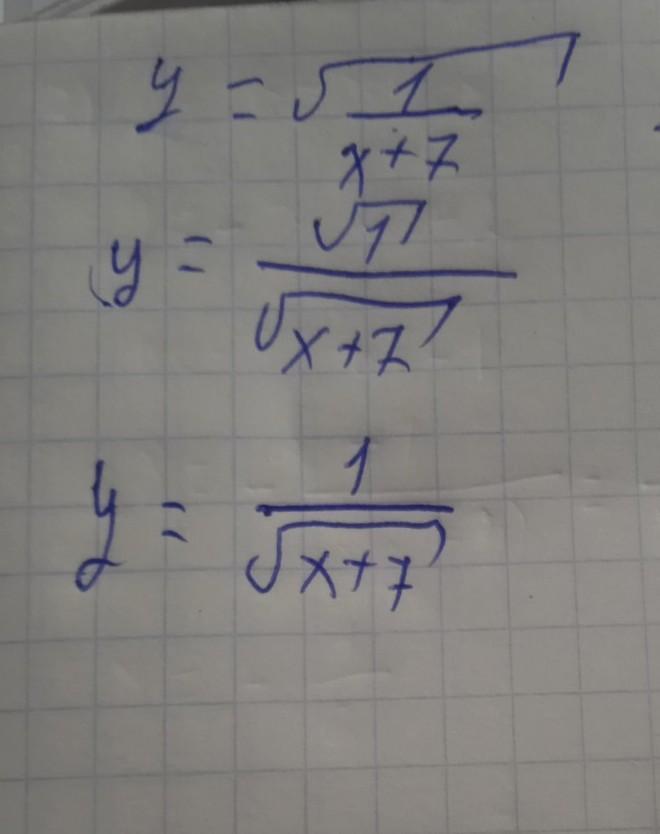 y = √(1/(x+7))
y = √1/√(x+7)
y = 1/√(x+7)